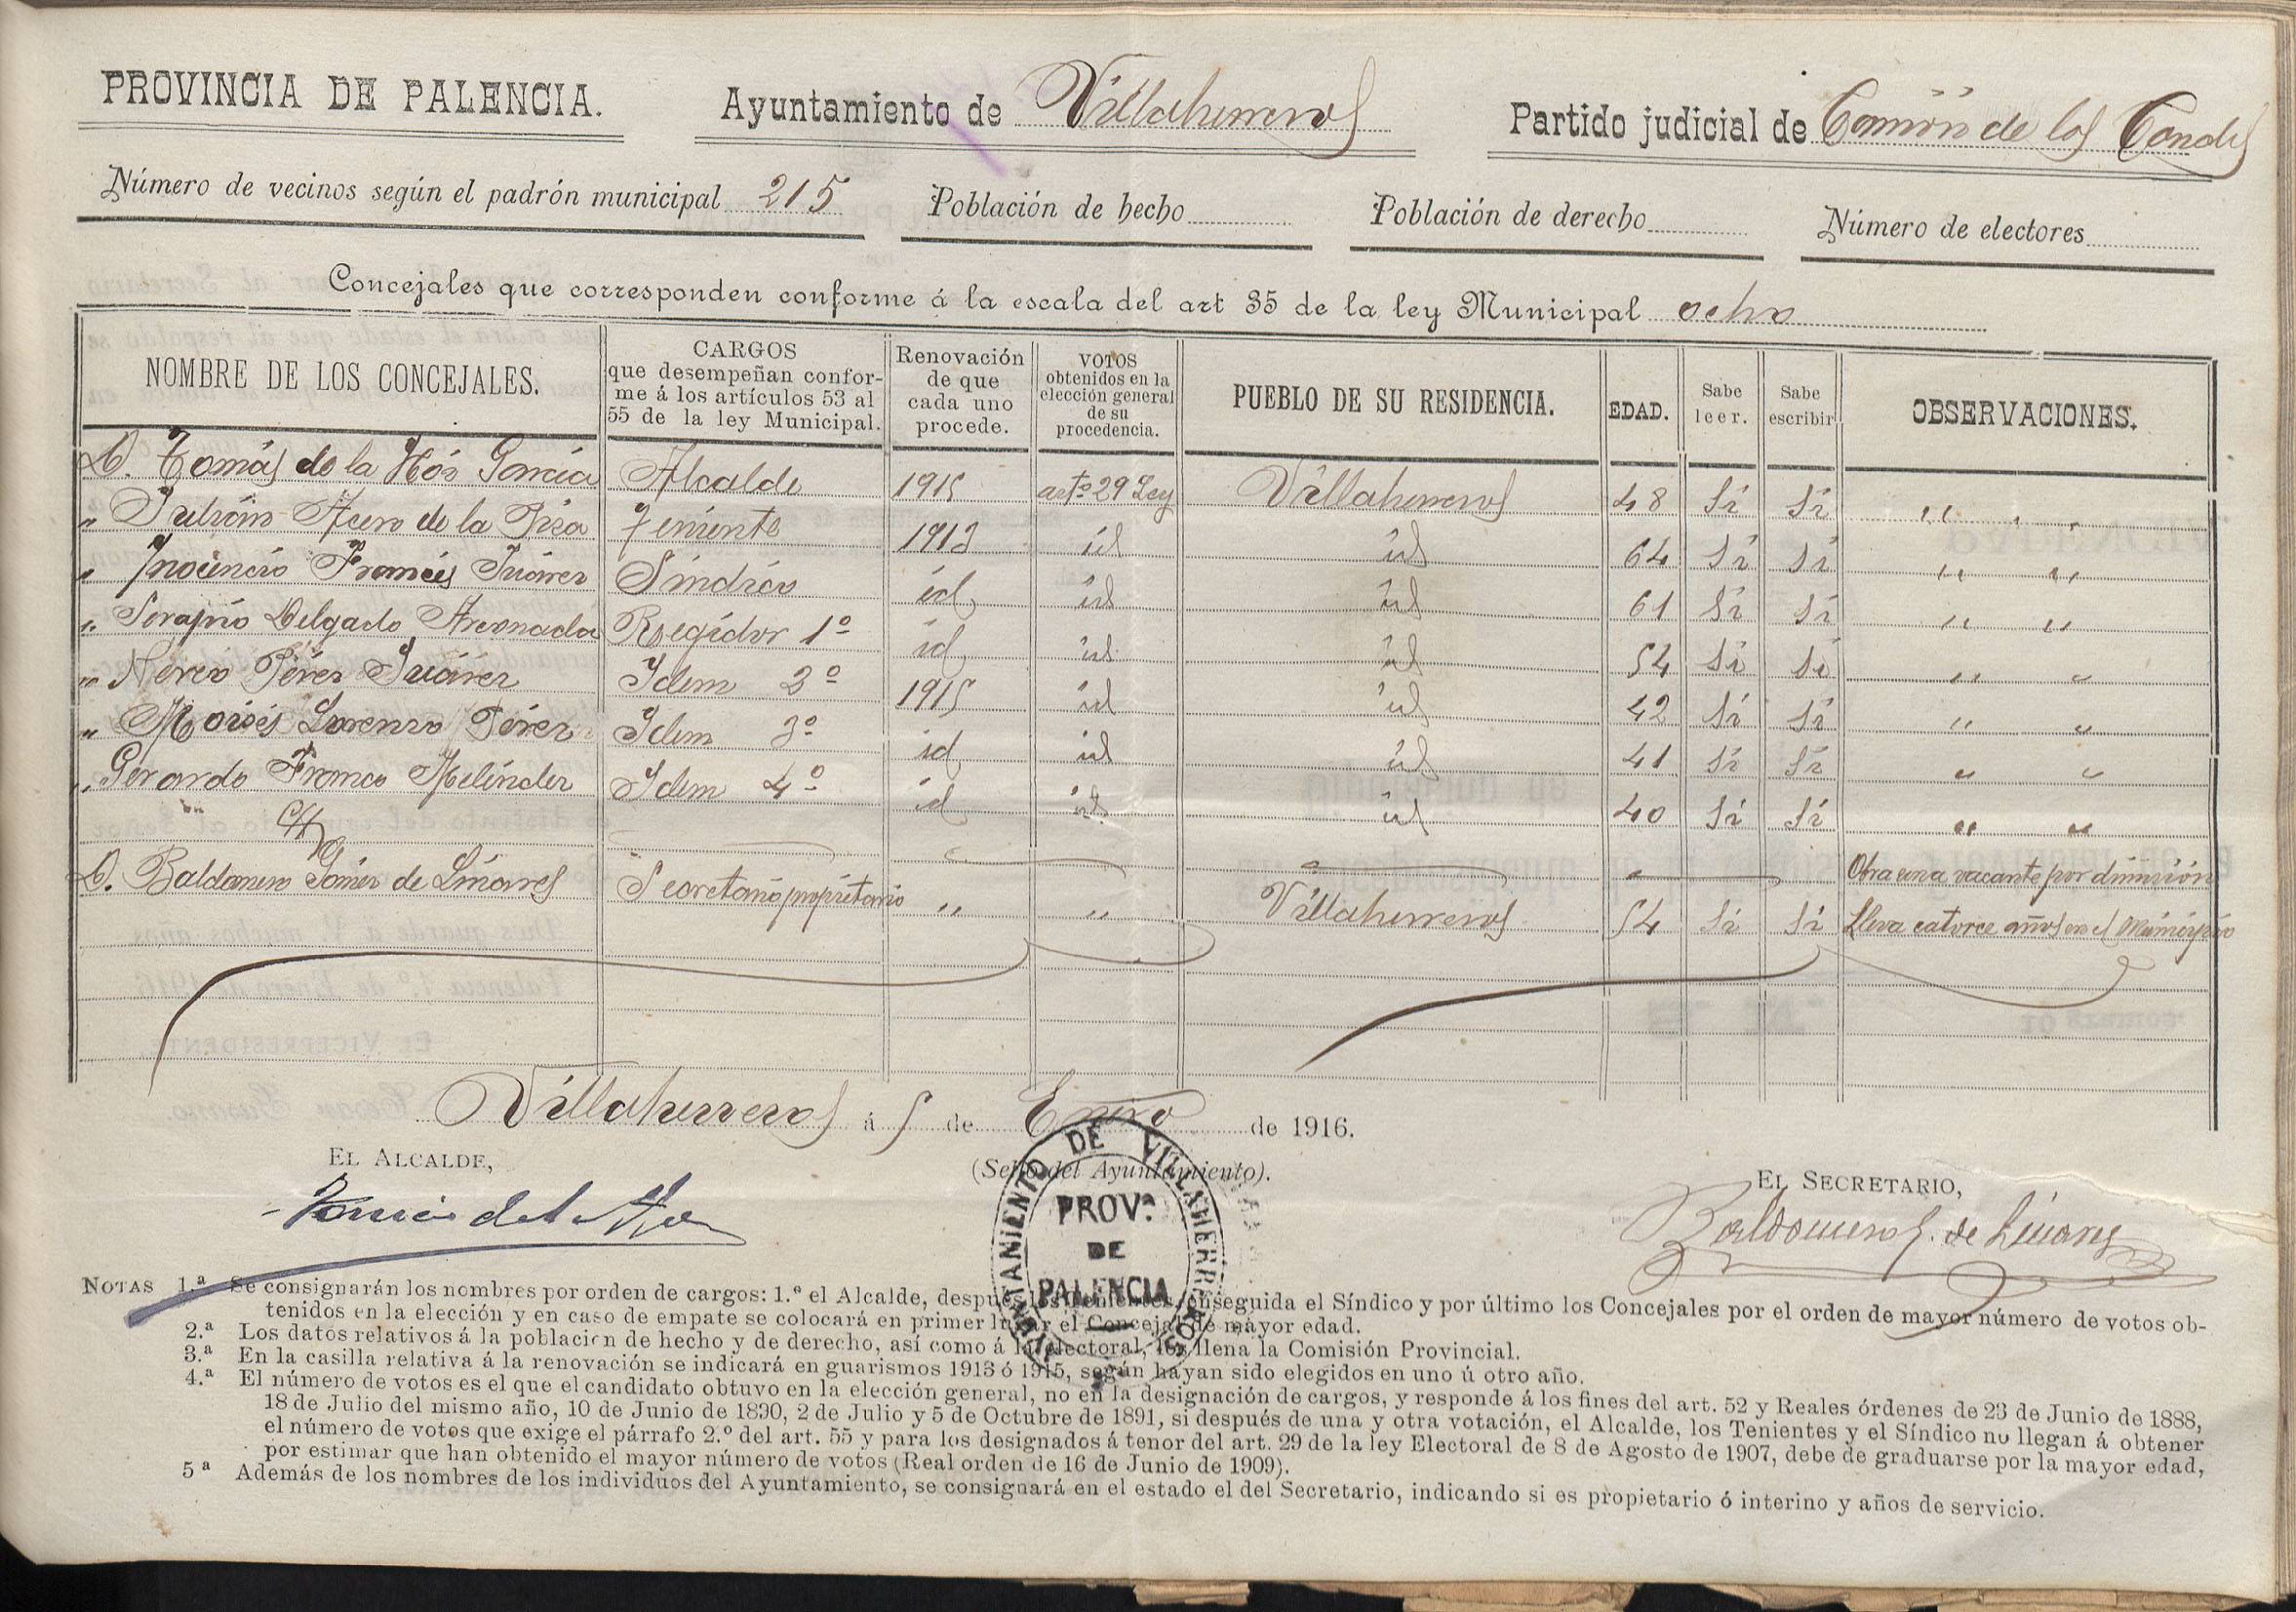 PROVINCIA DE PALENCIA. Ayuntamiento de Villaherreros Partido judicial de Carrión de los Condes
Número de vecinos según el padrón municipal 215 Población de hecho Población de derecho Número de electores
Concejales que corresponden conforme á la escala del art 35 de la ley Municipal ocho
NOMBRE DE LOS CONCEJALES. CARGOS que desempeñan confor- me á los artículos 53 al 55 de la ley Municipal. Renovación de que cada uno procede. VOTOS obtenidos en la elección general de su procedencia. PUEBLO DE SU RESIDENCIA. EDAD. Sabe leer. Sabe escribir OBSERVACIONES.
D. Tomás de la Hoz García Alcalde 1915 artº 29 Ley Villaherreros 48 Si Si " " "
" Julián Acero de la Pisa Teniente 1913 id id 64 Si Si " "
" Inocencio Francés Juárez Síndico id id id 61 Si Si " "
" Serapio Delgado Arconada Regidor 1º id id id 54 Si Si " "
" Nereo Pérez Juárez Idem 2º 1915 id id 42 Si Si " "
" Moisés Lorenzo Pérez Idem 3º id id id 41 Si Si " "
" Gerardo Franco Meléndez Idem 4º id id id 40 Si Si " "
Obra una vacante por dimisión
D. Baldomero Gómez de Linares Secretario propietario " " Villaherreros 54 Si Si Lleva catorce años en el Municipio
Villaherreros á 5 de Enero de 1916.
EL ALCALDE, (Sello del Ayuntamiento). EL SECRETARIO,
AYUNTAMIENTO DE VILLAHERREROS
PROVª
DE
PALENCIA
Tomás de la Hoz
Baldomero G. de Linares
NOTAS 1.ª Se consignarán los nombres por orden de cargos: 1.º el Alcalde, después los Tenientes, enseguida el Síndico y por último los Concejales por el orden de mayor número de votos ob-
tenidos en la elección y en caso de empate se colocará en primer lugar el Concejal de mayor edad.
2.ª Los datos relativos á la población de hecho y de derecho, así como á la electoral, los llena la Comisión Provincial.
3.ª En la casilla relativa á la renovación se indicará en guarismos 1913 ó 1915, según hayan sido elegidos en uno ú otro año.
4.ª El número de votos es el que el candidato obtuvo en la elección general, no en la designación de cargos, y responde á los fines del art. 52 y Reales órdenes de 23 de Junio de 1888,
18 de Julio del mismo año, 10 de Junio de 1890, 2 de Julio y 5 de Octubre de 1891, si después de una y otra votación, el Alcalde, los Tenientes y el Síndico no llegan á obtener
el número de votos que exige el párrafo 2.º del art. 55 y para los designados á tenor del art. 29 de la ley Electoral de 8 de Agosto de 1907, debe de graduarse por la mayor edad,
por estimar que han obtenido el mayor número de votos (Real orden de 16 de Junio de 1909).
5ª Además de los nombres de los individuos del Ayuntamiento, se consignará en el estado el del Secretario, indicando si es propietario ó interino y años de servicio.